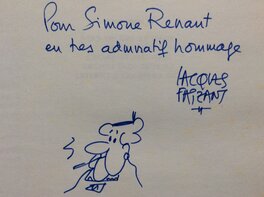 Pour Simone Renant
en très admiratif hommage
JACQUES
FAIZANT